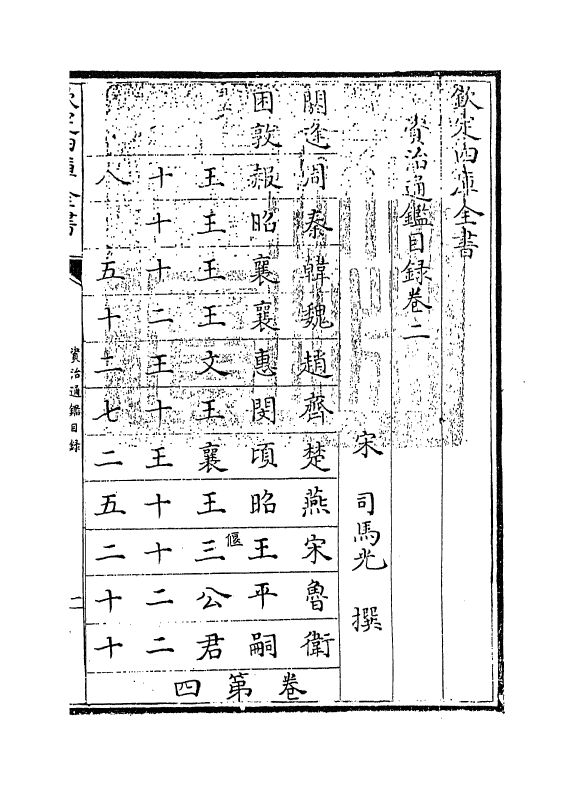 欽定四庫全書
資治通鑑目録卷二
宋 司馬光 撰
閼逢
困敦
周赧王十八
秦昭王十
韓襄王十五
魏襄王二十
趙惠文王二
齊閔王十七
楚頃襄王二
燕昭王十五
宋王偃三十二
魯平公二十
衛嗣君二十
卷第四
欽定四庫全書
資治通鑑目録
二